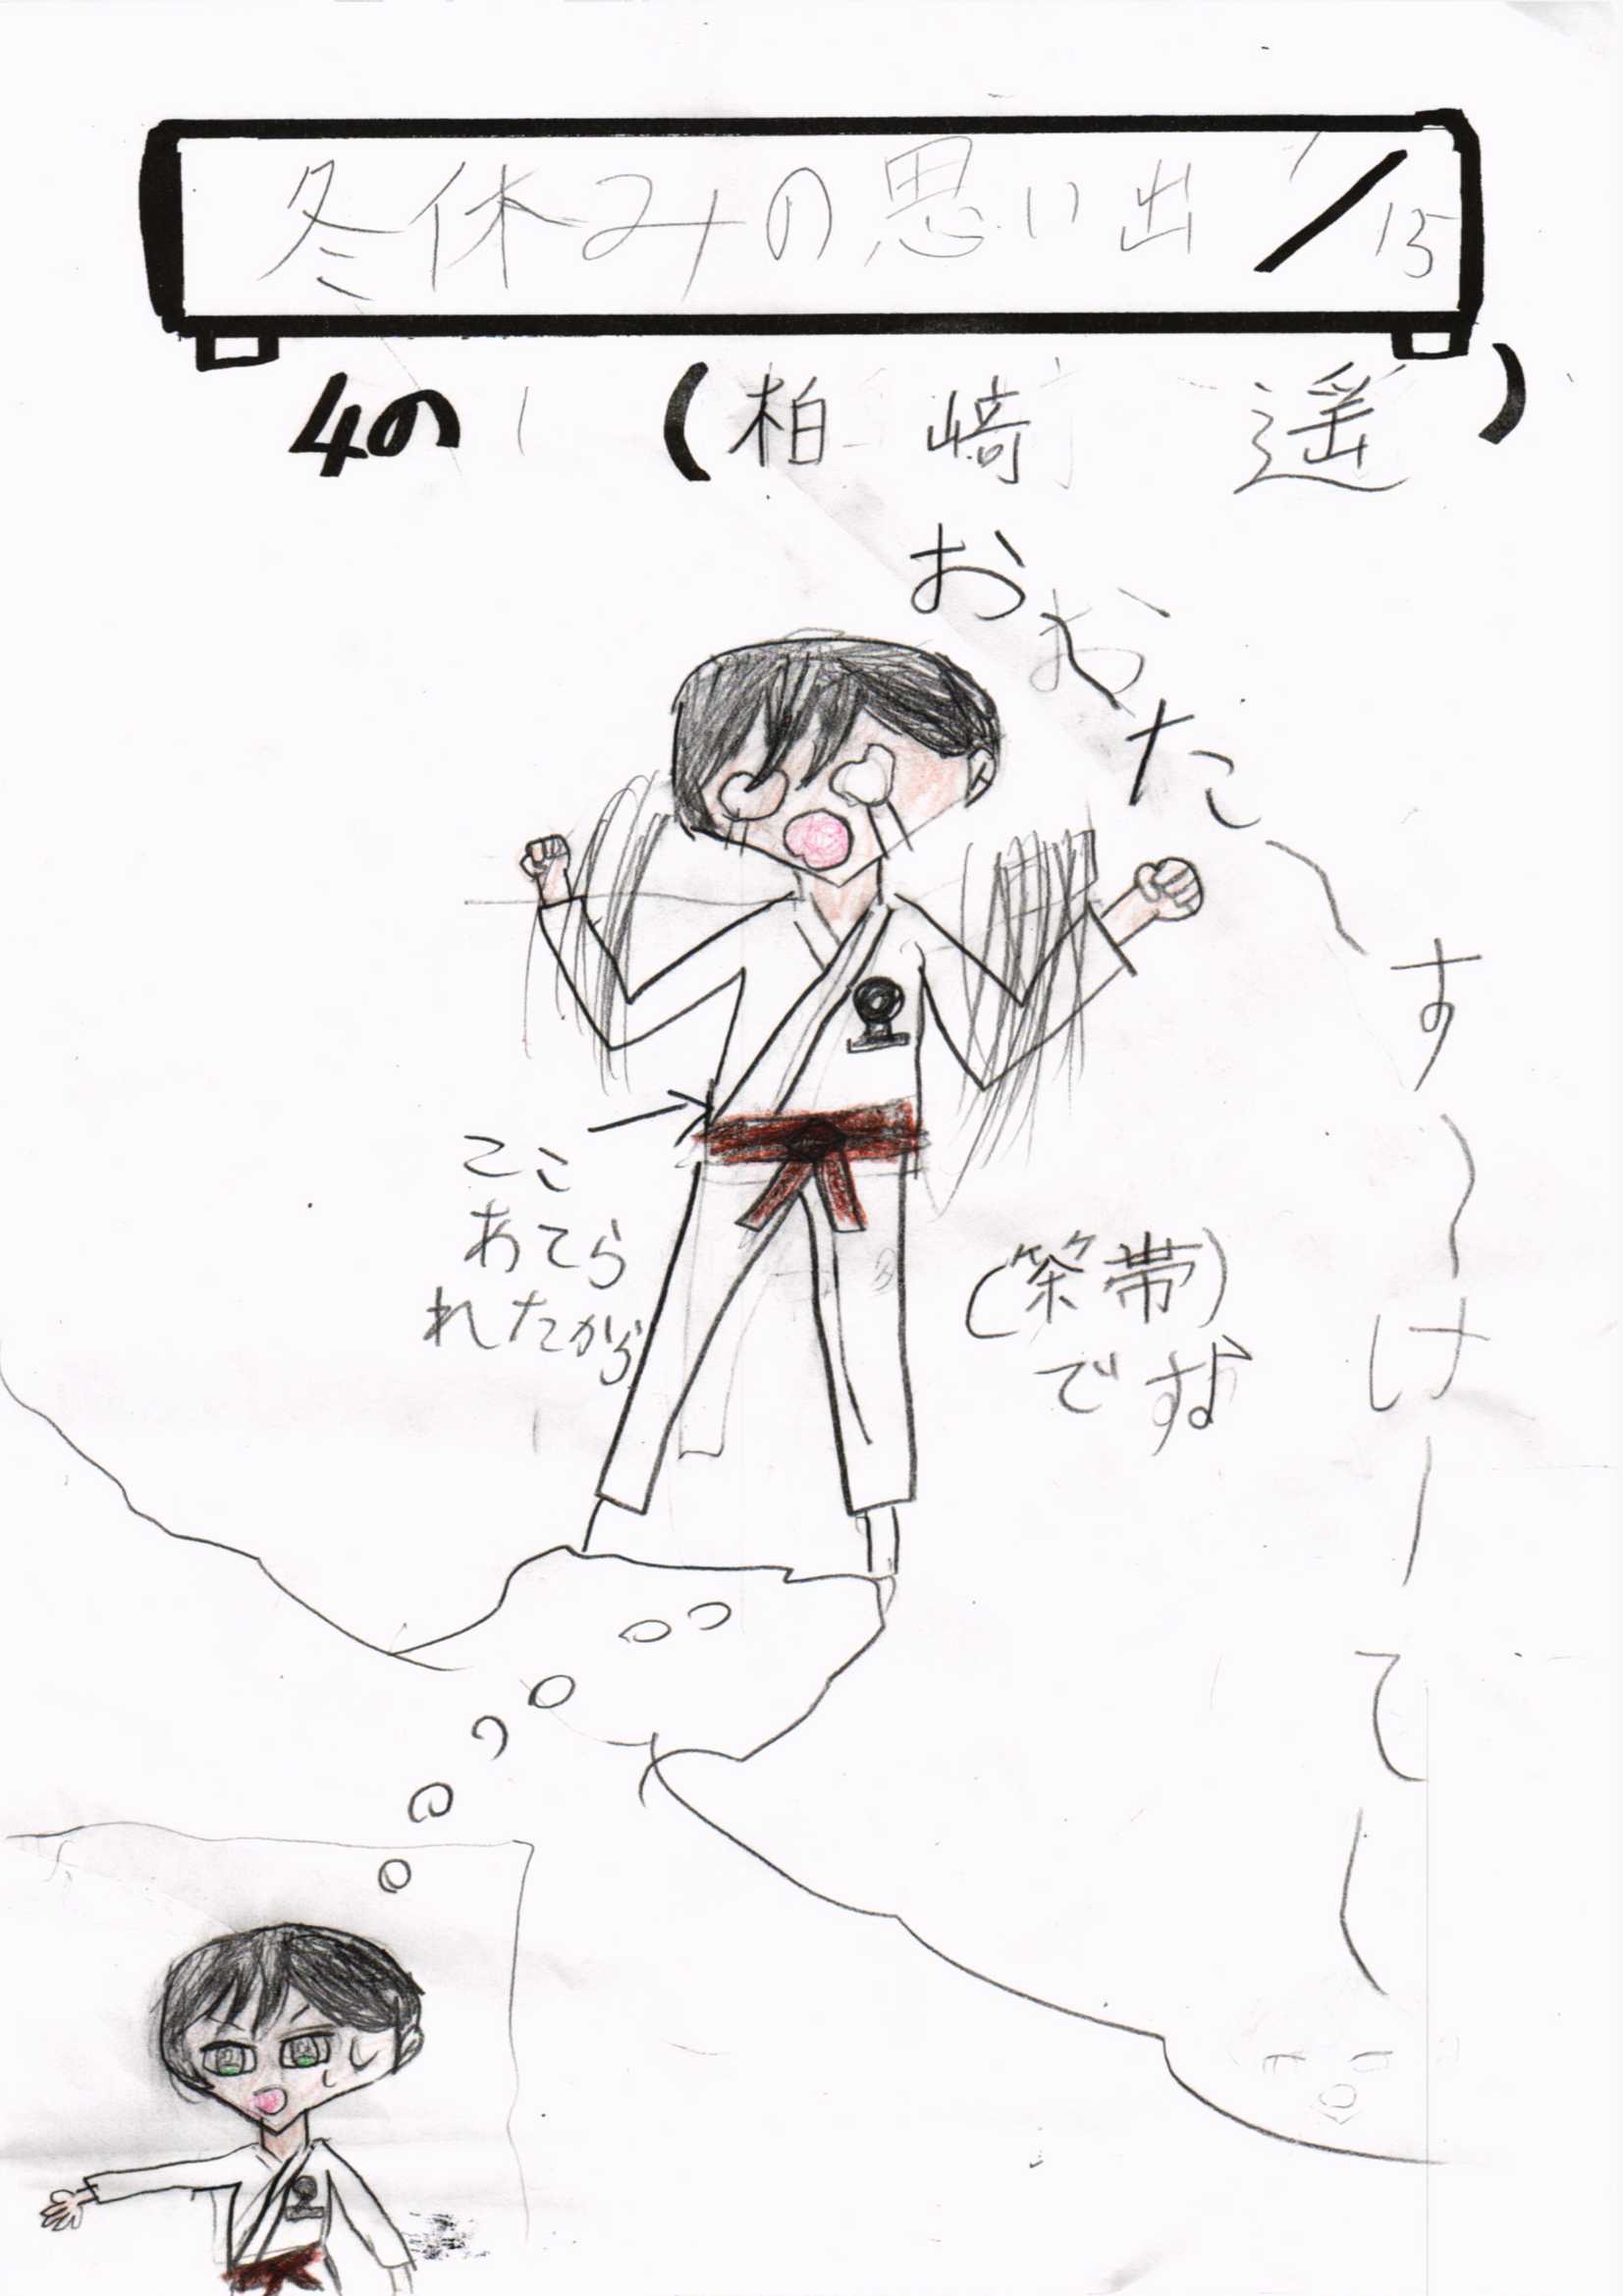 冬休みの思い出 1/15
4の1 (柏﨑 遥)
おおた〜す〜け〜て〜
ここ
あてら
れたから
(茶帯)
ですよ